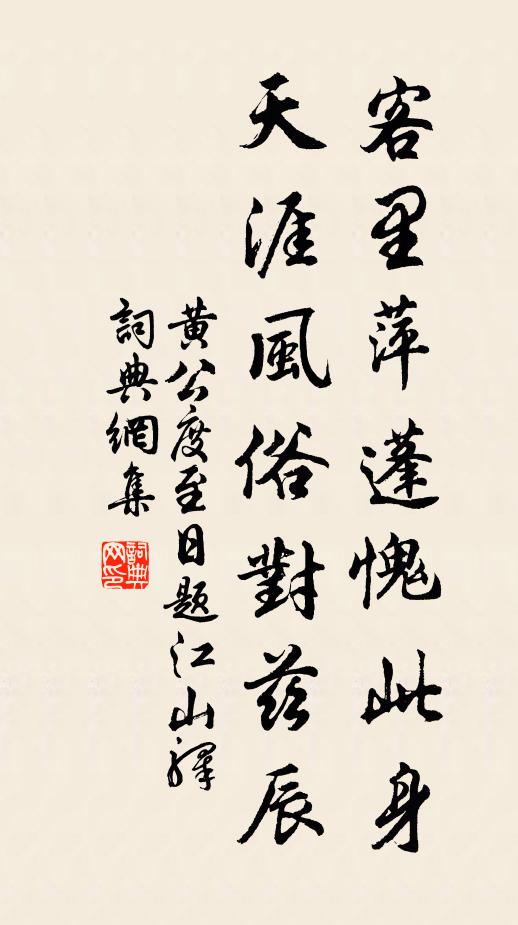 客里萍蓬愧此身
天涯風俗對茲辰
黃公度至日題江山驛
詞典網集
詞典網印